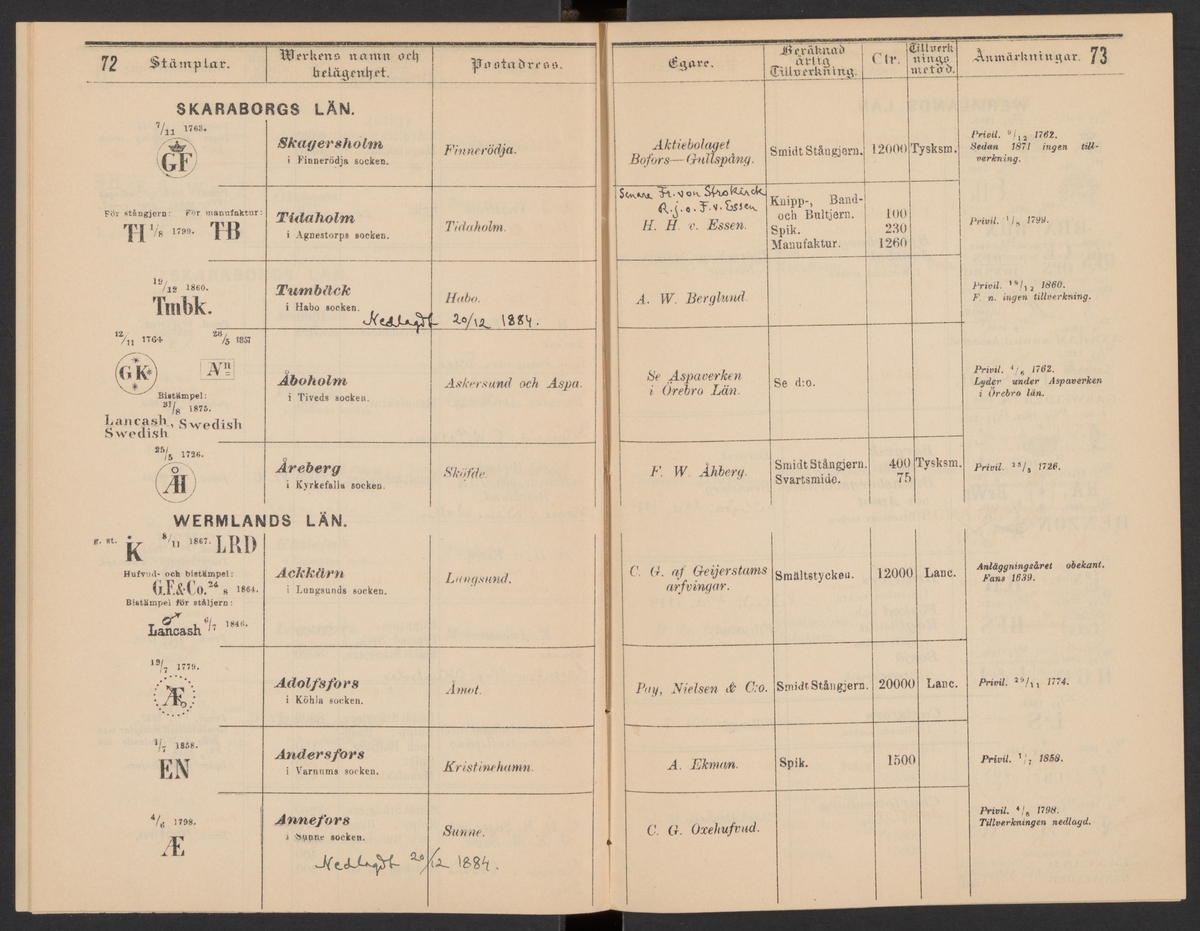 72 Stämplar. Werkens namn och belägenhet. Postadress. Egare. Beräknad årlig Tillverkning. Ctr. Tillverknings metod. Anmärkningar. 73
SKARABORGS LÄN.
7/11 1763.
GF
Skagersholm
i Finnerödja socken.
Finnerödja.
Aktiebolaget
Bofors—Gullspång.
Smidt Stångjern. 12000 Tysksm.
Privil. 9/12 1762.
Sedan 1871 ingen till-
verkning.
För stångjern: För manufaktur:
TH 1/8 1799. TB
Tidaholm
i Agnestorps socken.
Tidaholm.
Senare Fr. von Strokirck
R.j.o. F.v. Essen
H. H. v. Essen.
Knipp-, Band-
och Bultjern. 100
Spik. 230
Manufaktur. 1260
Privil. 1/8 1799.
19/12 1860.
Tmbk.
Tumbäck
i Habo socken.
Habo.
Nedlagdt 20/12 1884.
A. W. Berglund.
Privil. 19/12 1860.
F. n. ingen tillverkning.
12/11 1764 28/5 1857
GK Nn
Bistämpel:
31/8 1875.
Lancash, Swedish
Swedish
Åboholm
i Tiveds socken.
Askersund och Aspa.
Se Aspaverken
i Örebro Län.
Se d:o.
Privil. 4/6 1762.
Lyder under Aspaverken
i Örebro län.
25/5 1726.
ÅH
Åreberg
i Kyrkefalla socken.
Sköfde.
F. W. Åhberg.
Smidt Stångjern. 400 Tysksm.
Svartsmide. 75
Privil. 25/5 1726.
WERMLANDS LÄN.
g. st. K 8/11 1867. LRD
Hufvud- och bistämpel:
G.F.&Co. 24/8 1864.
Bistämpel för ståljern:
Lancash 6/7 1846.
Ackkärn
i Lungsunds socken.
Lungsund.
C. G. af Geijerstams
arfvingar.
Smältstycken. 12000 Lanc.
Anläggningsåret obekant.
Fans 1639.
19/7 1779.
Æo
Adolfsfors
i Köhla socken.
Åmot.
Pay, Nielsen & C:o. Smidt Stångjern. 20000 Lanc.
Privil. 29/11 1774.
1/7 1858.
EN
Andersfors
i Varnums socken.
Kristinehamn.
A. Ekman. Spik. 1500
Privil. 1/7 1858.
4/6 1798.
Æ
Annefors
i Sunne socken.
Sunne.
Nedlagdt 20/12 1884.
C. G. Oxehufvud.
Privil. 4/6 1798.
Tillverkningen nedlagd.